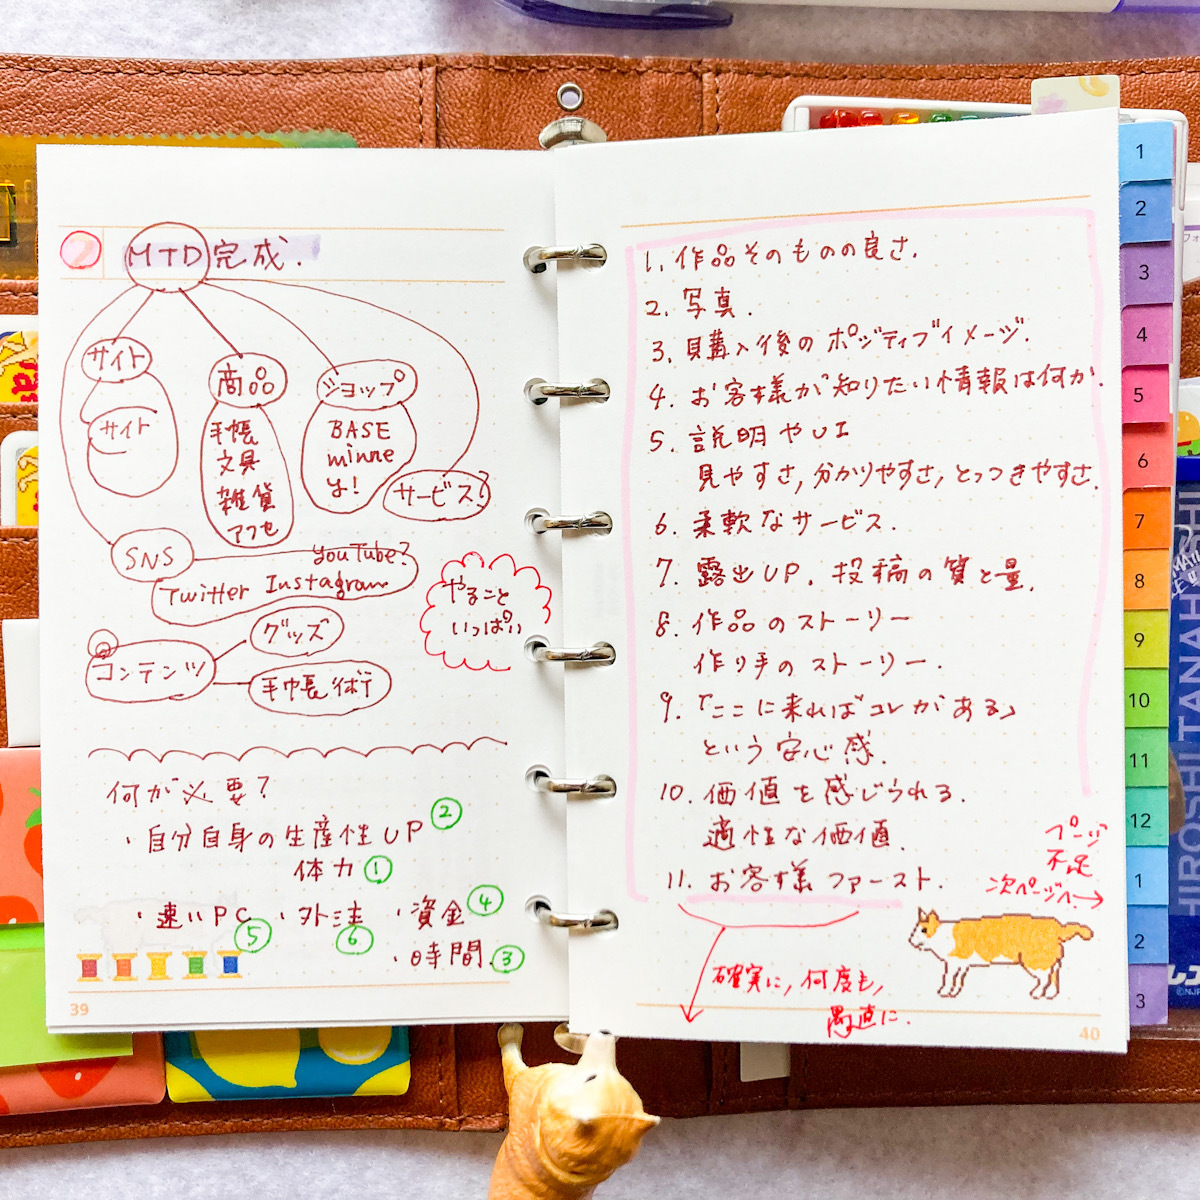 MTD完成.
サイト
サイト
商品
手帳
文具
雑貨
アクセ
ショップ
BASE
minne
y!
サービス!
SNS
YouTube?
Twitter Instagram
やること
いっぱい
コンテンツ
グッズ
手帳術
何が必要?
・自分自身の生産性UP ②
体力 ①
・速いPC ⑤ ・外注 ⑥ ・資金 ④
・時間 ③
39
1. 作品そのものの良さ.
2. 写真.
3. 購入後のポジティブイメージ.
4. お客様が知りたい情報は何か.
5. 説明やUI
見やすさ, 分かりやすさ, とっつきやすさ.
6. 柔軟なサービス.
7. 露出UP. 投稿の質と量.
8. 作品のストーリー
作り手のストーリー.
9. 「ここに来ればコレがある」
という安心感.
10. 価値を感じられる.
適性な価値.
11. お客様ファースト.
ページ
不足
次ページへ→
確実に, 何度も,
愚直に.
40
1
2
3
4
5
6
7
8
9
10
11
12
1
2
3
HIROSHI TANAHASHI